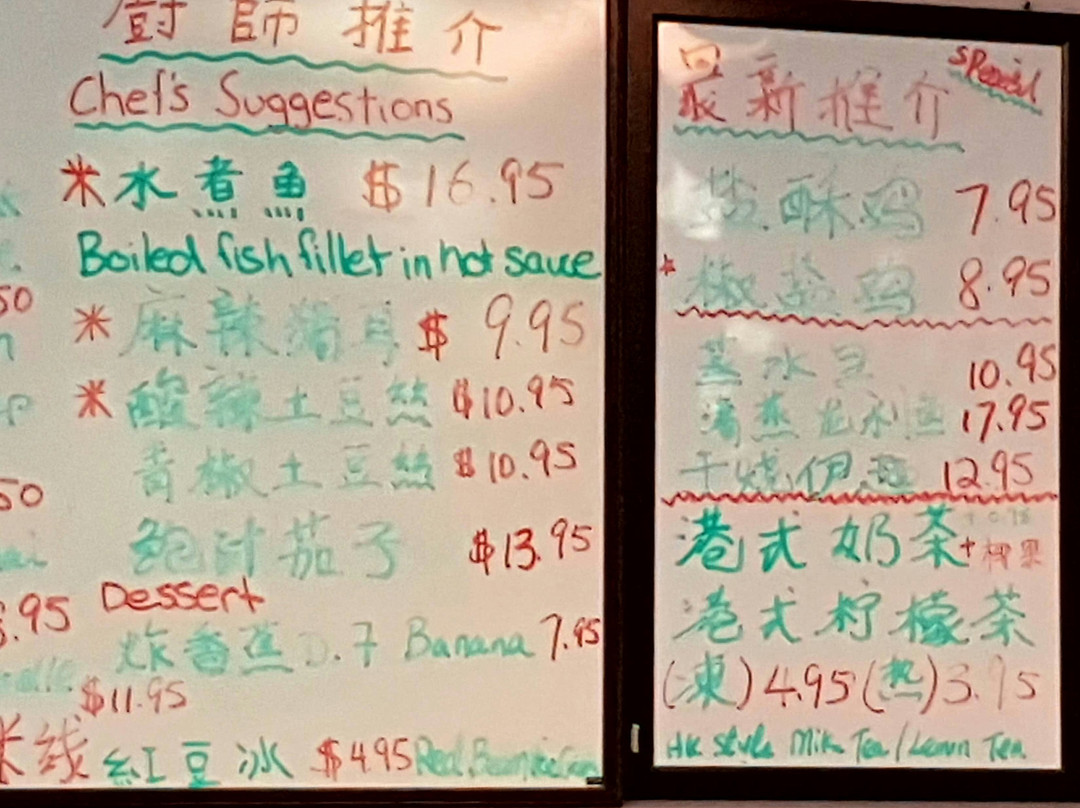 廚師推介
Chef's Suggestions
米水煮魚 $16.95
Boiled fish fillet in hot sauce
米麻辣 $ 9.95
米酸辣土豆絲 $10.95
青椒土豆絲 $10.95
鮑汁茄子 $13.95
.95 Dessert
炸香蕉 Banana 7.95
$11.95
米线 紅豆冰 $4.95 Red Bean Ice
最新推介 Special
盐酥鸡 7.95
椒盐鸡 8.95
10.95
17.95
干烧伊面 12.95
港式奶茶 + 椰果
港式柠檬茶
(凍) 4.95 (热) 3.95
HK Style Milk Tea / Lemon Tea
50
50